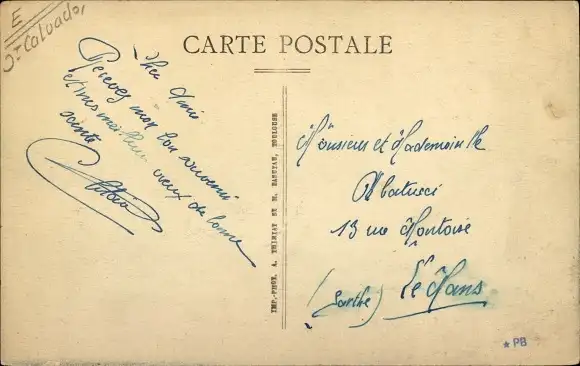 E
St Calvados
CARTE POSTALE
Cher Amis
Recevez mon bon souvenir
et mes meilleurs vœux de bonne
sainte
Monsieur et Mademoiselle
Abatucci
13 rue Montoise
Le Mans
(Sarthe)
IMP.-PHOT. A. THIRIAT ET M. BASUYAU, TOULOUSE
* PB